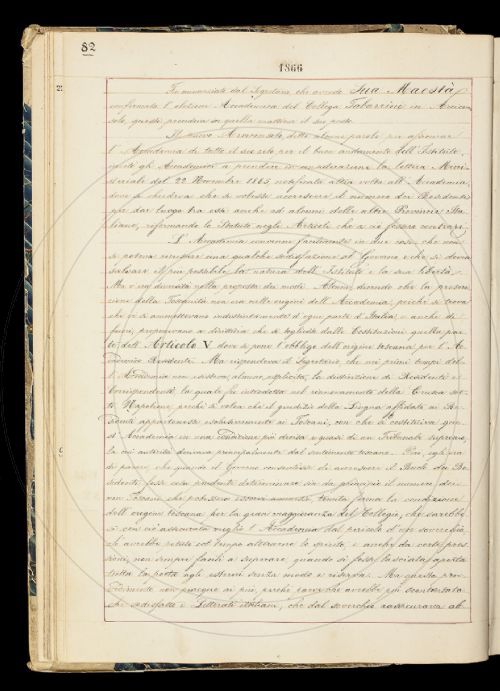 82
1866
Fu annunziato dal Segretario che avendo Sua Maestà
confermata l'elezione Accademica del Collega Tabarrini in Arcicon-
solo, questi prendeva in quella mattina il suo posto.
Il nuovo Arciconsolo, dette alcune parole per assicurar
l'Accademia di tutto il suo zelo pel buon andamento dell'Istituto,
invitò gli Accademici a prendere in considerazione la lettera Mini-
steriale del 22 Novembre 1865, notificata altra volta all'Accademia,
dove si chiedeva che si volesse accrescere il numero dei Residenti
per dar luogo tra essi anche ad alcuni delle altre Provincie Ita-
liane, riformando lo Statuto negli Articoli che a ciò fossero contrari.
L'Accademia convenne facilmente in due cose: che non
si poteva negare una qualche sodisfazione al Governo e che si dovea
salvare il più possibile la natura dell'Istituto e la sua libertà.
Ma v'era disunità nella proposta dei modi. Alcuni, dicendo che la preser-
zione della Toscanità non era nelle origini dell'Accademia, poichè si trova
che vi si ammettevano indistintamente d'ogni parte d'Italia, e anche di
fuori, proponevano a dirittura che si togliesse dalle Costituzioni quella par-
te dell'Articolo V dove si pone l'obbligo dell'origine toscana per l'Ac-
cademico Residente. Ma rispondeva il Segretario che nei primi tempi del-
l'Accademia non esisteva, almeno esplicita, la distinzione di Residenti e
Corrispondenti, la quale fu introdotta nel rinnovamento della Crusca sot-
to Napoleone, perchè si volea che il giudizio della Lingua affidato ai Re-
sidenti appartenesse esclusivamente ai Toscani, con che si costituiva que-
st'Accademia in una condizione più decisa e quasi di un Tribunale supremo,
la cui autorità derivava principalmente dal sentimento toscano. Però, egli era
di parere, che quando il Governo consentisse di accrescere il Ruolo dei Re-
sidenti, fosse cosa prudente determinare sin da principio il numero dei
non Toscani che potessero esservi ammessi, tenuta ferma la condizione
dell'origine toscana per la gran maggioranza del Collegio; che sarebbe
si così ci assicurata meglio l'Accademia dal pericolo d'un soverchio,
che avrebbe potuto col tempo alterarne lo spirito, e anche da certe pres-
sioni, non sempre facili a superare, quando si fosse lasciata aperta
tutta la porta agli esterni senza modo e riserva. Ma questo prov-
vedimento non piacque ai più, perchè parve che avrebbe più scontentato
che sodisfatto i Letterati italiani, che dal soverchio rassicurava al-